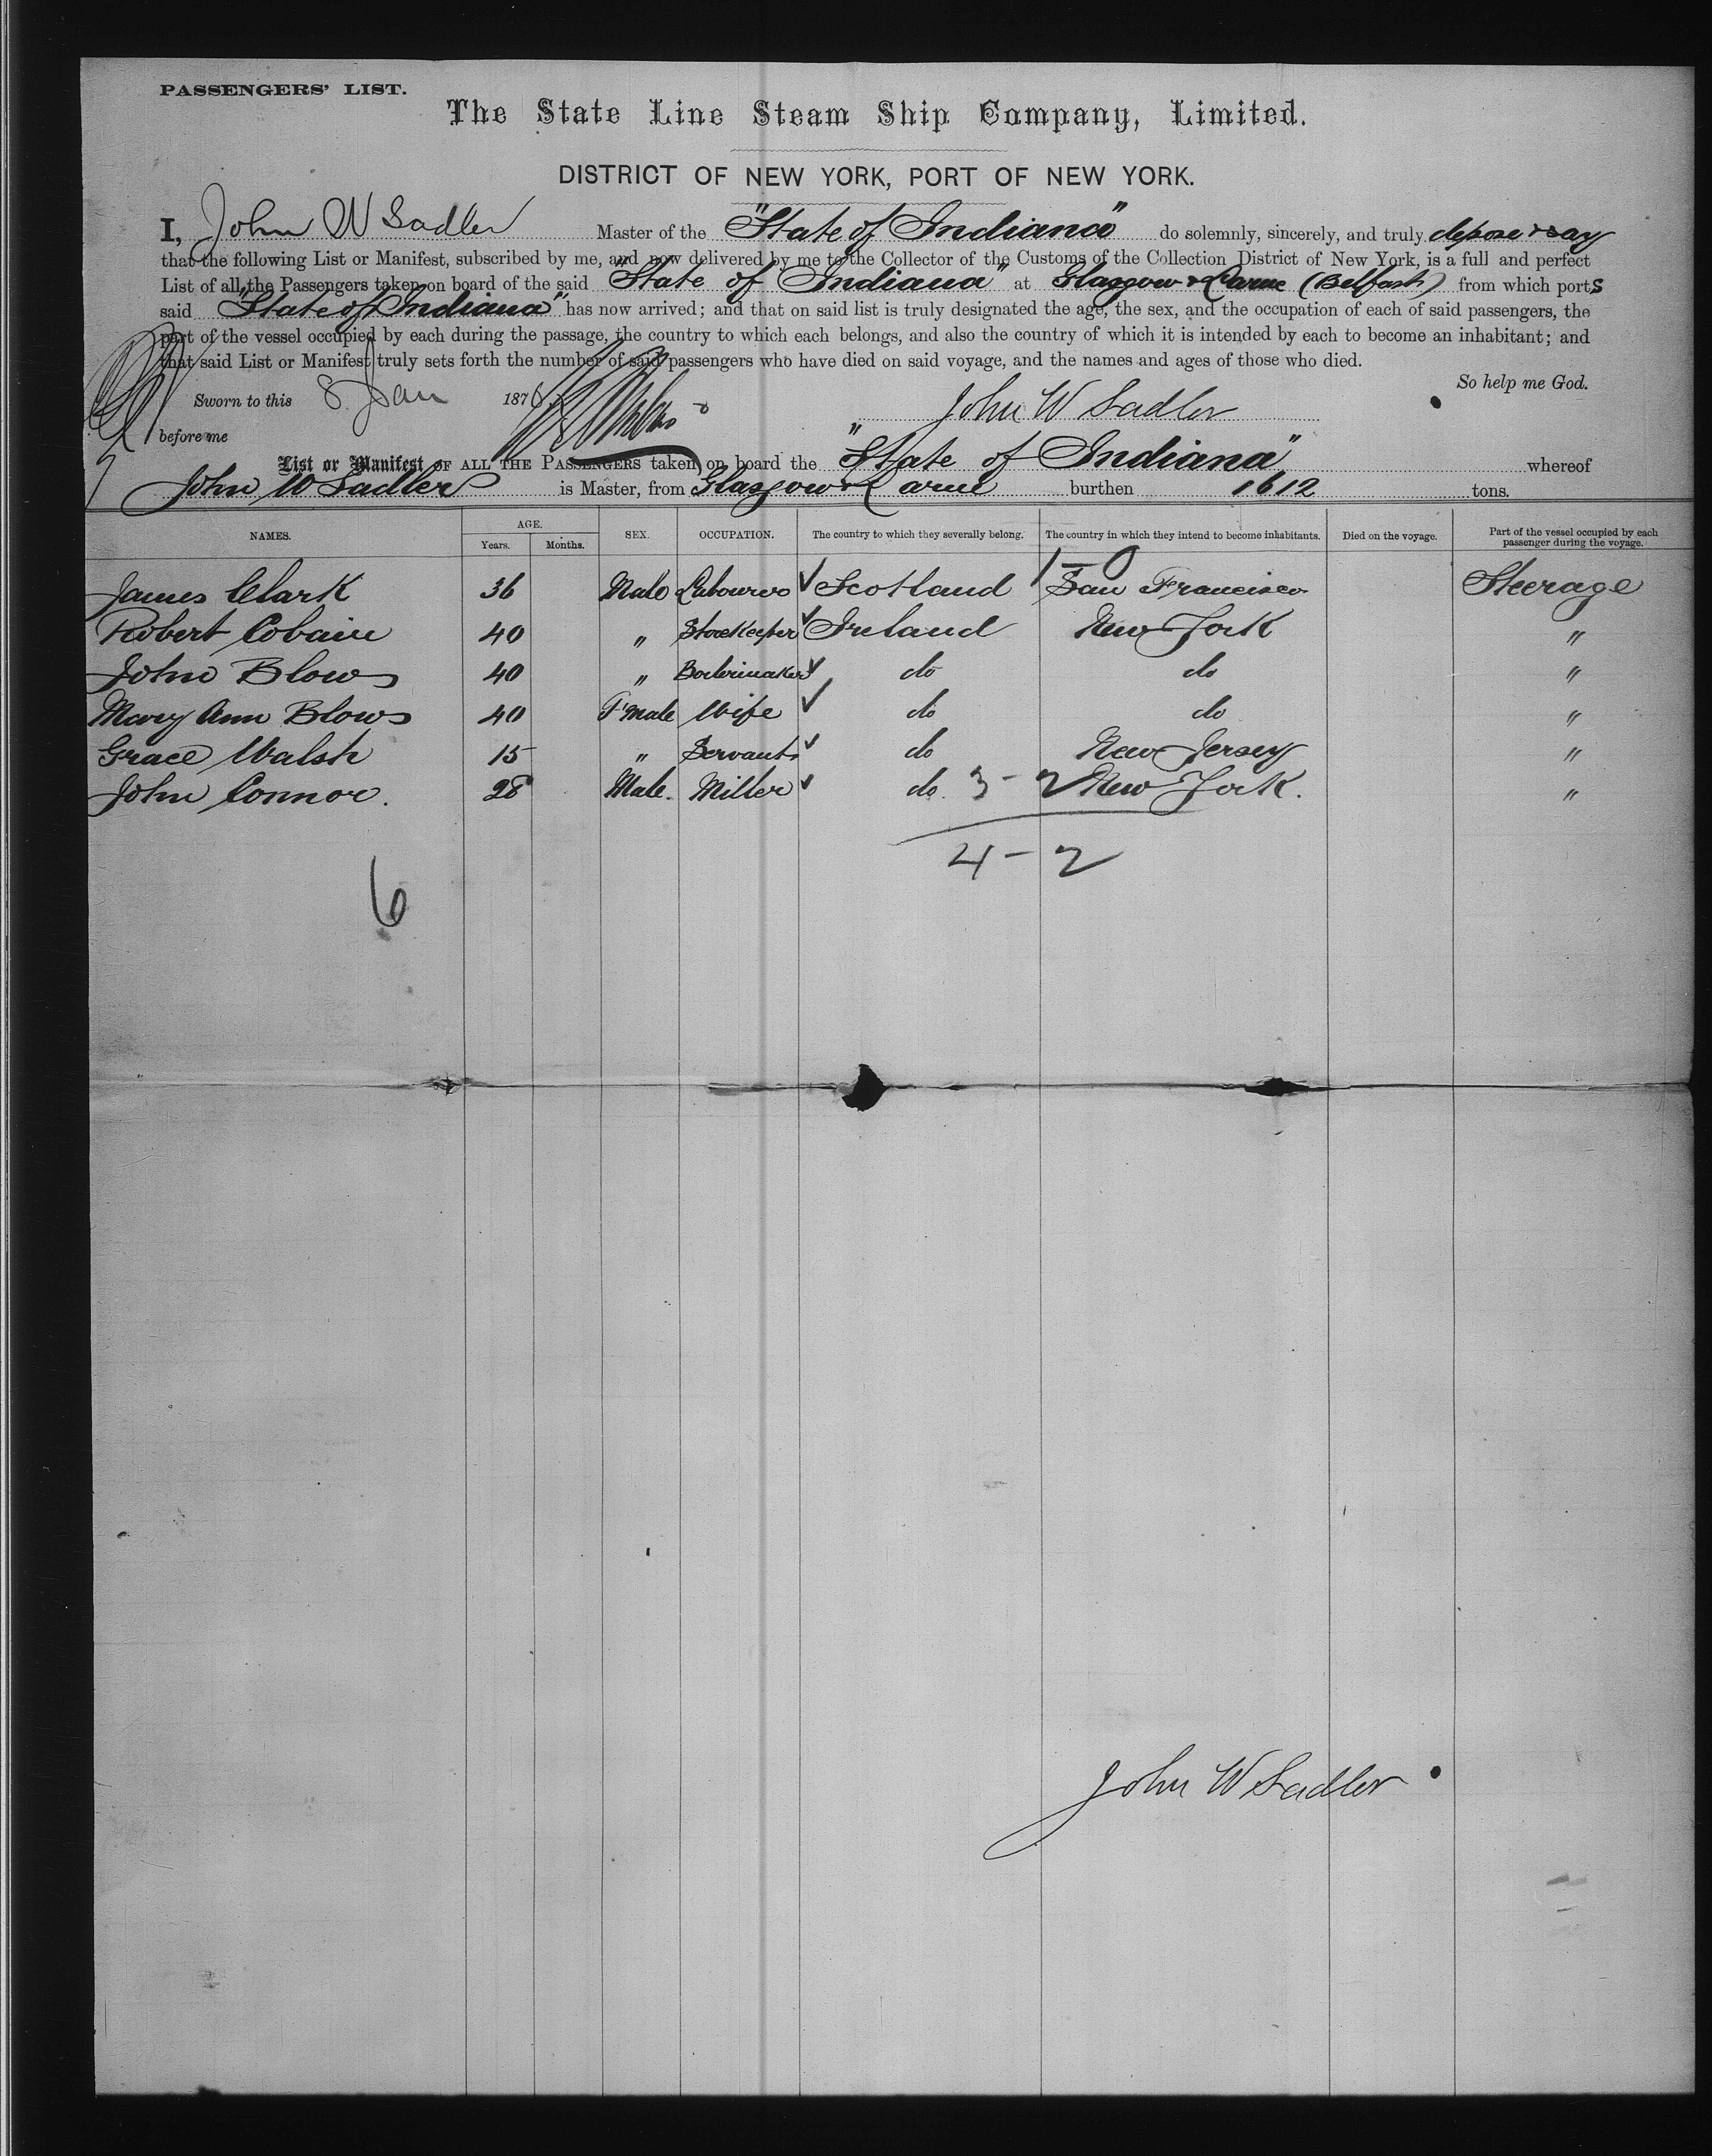 PASSENGERS' LIST.
The State Line Steam Ship Company, Limited.
DISTRICT OF NEW YORK, PORT OF NEW YORK.
I, John W Sadler Master of the "State of Indiana" do solemnly, sincerely, and truly depose & say
that the following List or Manifest, subscribed by me, and now delivered by me to the Collector of the Customs of the Collection District of New York, is a full and perfect
List of all the Passengers taken on board of the said "State of Indiana" at Glasgow & Larne (Belfast) from which ports
said "State of Indiana" has now arrived; and that on said list is truly designated the age, the sex, and the occupation of each of said passengers, the
part of the vessel occupied by each during the passage, the country to which each belongs, and also the country of which it is intended by each to become an inhabitant; and
that said List or Manifest truly sets forth the number of said passengers who have died on said voyage, and the names and ages of those who died.
So help me God.
Sworn to this 8 Jan 1876
John W Sadler
before me
List or Manifest OF ALL THE PASSENGERS taken on board the "State of Indiana" whereof
John W Sadler is Master, from Glasgow & Larne burthen 1612 tons.
NAMES. AGE. Years. Months. SEX. OCCUPATION. The country to which they severally belong. The country in which they intend to become inhabitants. Died on the voyage. Part of the vessel occupied by each passenger during the voyage.
1-0
James Clark 36 Male Labourer ✓ Scotland San Francisco Steerage
Robert Cobain 40 " Storekeeper ✓ Ireland New York "
John Blows 40 " Boilermaker ✓ do do "
Mary Ann Blows 40 F'male Wife ✓ do do "
Grace Walsh 15 " Servant ✓ do New Jersey "
John Connor. 28 Male. Miller ✓ do. 3-2 New York. "
4-2
6
John W Sadler